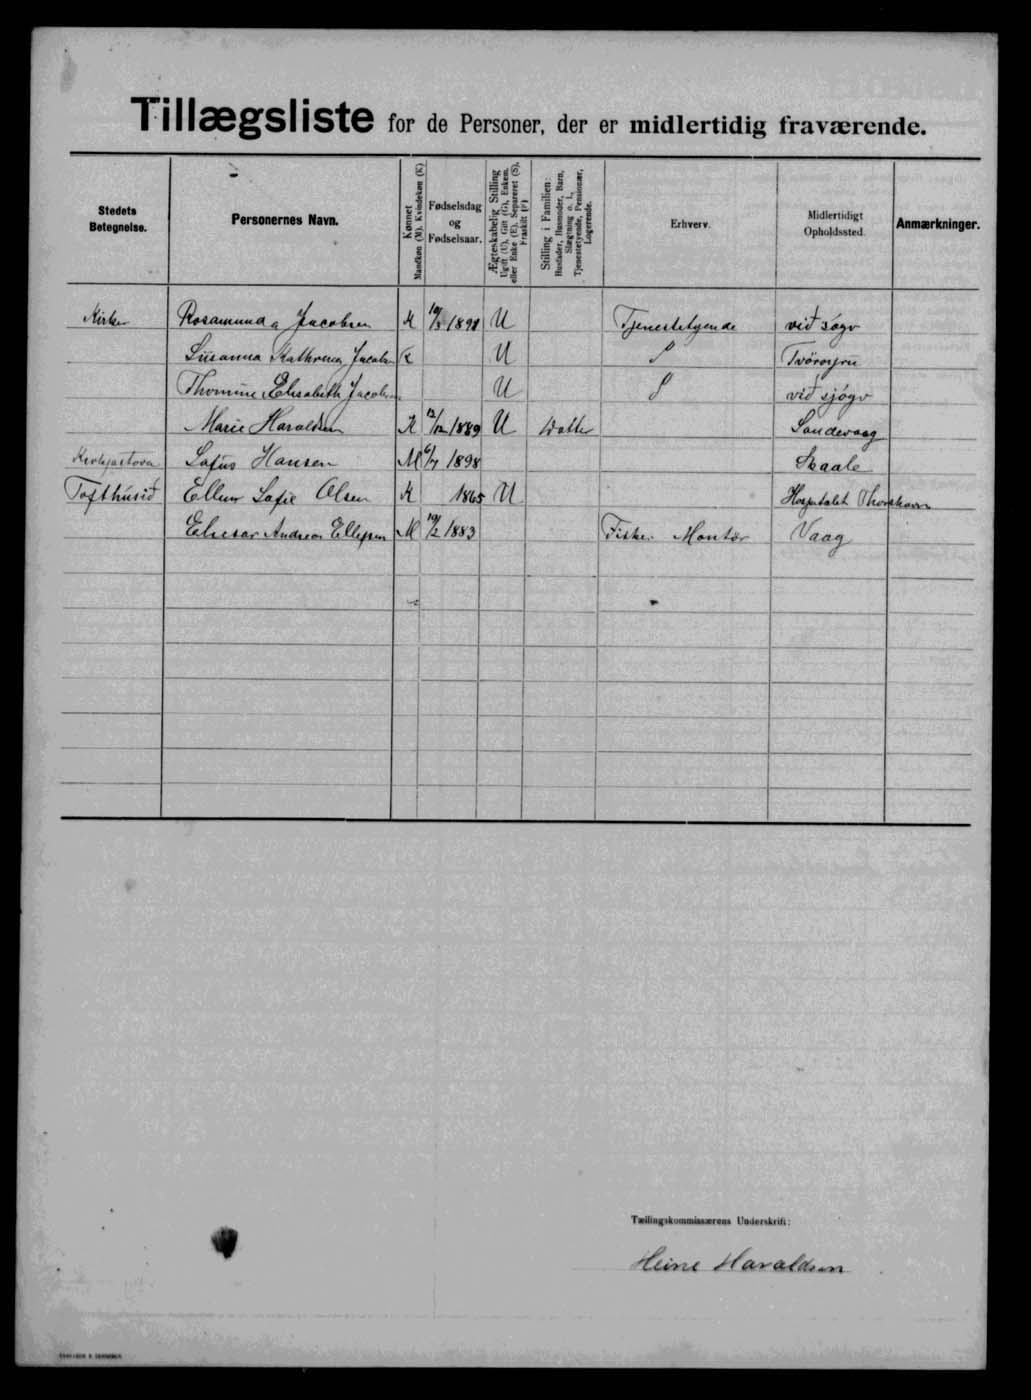 Tillægsliste for de Personer, der er midlertidig fraværende.
Stedets Betegnelse.
Personernes Navn.
Kønnet Mandkøn (M). Kvindekøn (K)
Fødselsdag og Fødselsaar.
Ægteskabelig Stilling Ugift (U), Gift (G), Enkem. eller Enke (E), Separeret (S), Fraskilt (F)
Stilling i Familien: Husfader, Husmoder, Barn, Slægtning o. l., Tjenestetyende, Pensionær, Logerende.
Erhverv.
Midlertidigt Opholdssted.
Anmærkninger.
Rosamunda Jacobsen K 1891 U Tjenestetyende við sógv
Susanna Kathrina Jacobsen K U Tvöroyru
Thomine Elisabeth Jacobsen U við sjógv
Marie Haraldsen K 12/12 1889 U Datter Sandevaag
Sofus Hansen M 6/7 1898 Skaale
Tofthúsið Ellen Sofie Olsen K 1865 U Hospitalet Thorshavn
Andreas Ellefsen M 19/2 1883 Fisker Montør Vaag
Tællingskommissærens Underskrift:
Heine Haraldsen